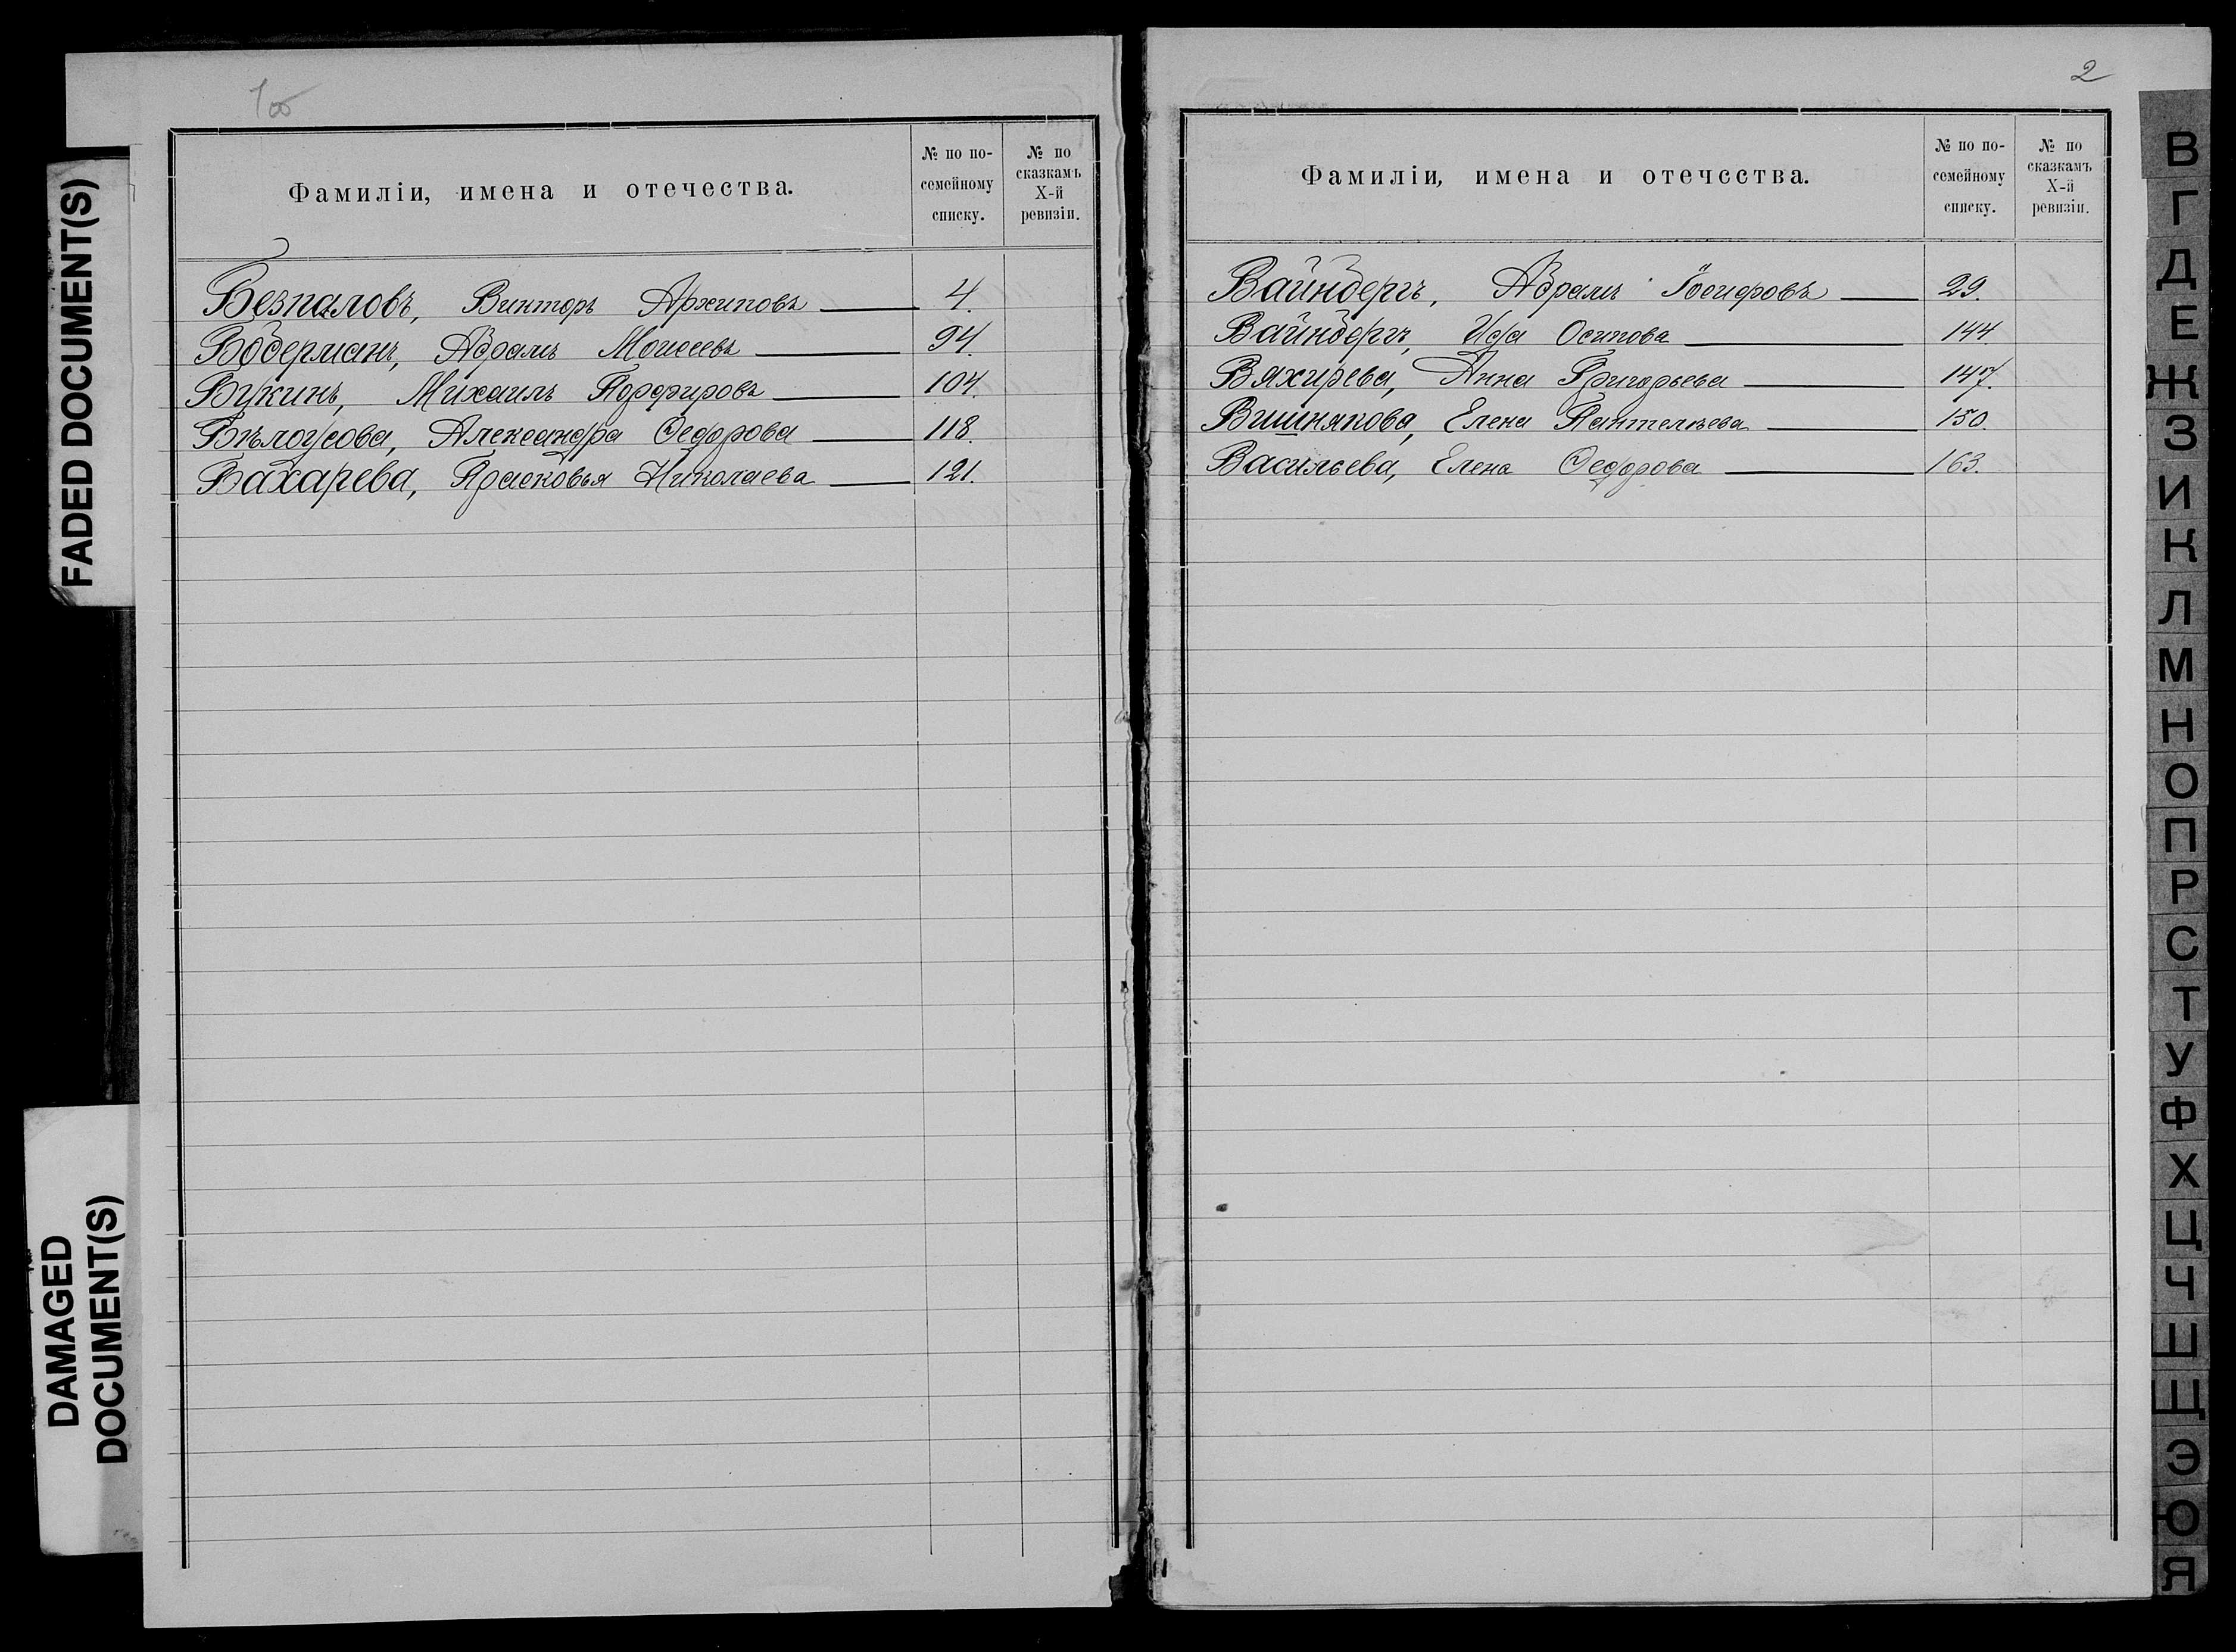 FADED DOCUMENT(S)
DAMAGED
DOCUMENT(S)
Фамиліи, имена и отечества.
№ по по-
семейному
списку.
№ по
сказкамъ
X-й
ревизіи.
Безпаловъ, Викторъ Архиповъ 4.
Боберманъ, Абрамъ Моисеевъ 94.
Букинъ, Михаилъ Порфировъ 104.
Бѣлоусова, Александра Федорова 118.
Бахарева, Прасковья Николаева 121.
2
Фамиліи, имена и отечества.
№ по по-
семейному
списку.
№ по
сказкамъ
X-й
ревизіи.
Вайнбергъ, Абрамъ Іосифовъ 29.
Вайнбергъ, Ида Осипова 144.
Вяхирева, Анна Григорьева 147.
Вишнякова, Елена Пантелѣева 150.
Васильева, Елена Федорова 163.
В
Г
Д
Е
Ж
З
И
К
Л
М
Н
О
П
Р
С
Т
У
Ф
Х
Ц
Ч
Ш
Щ
Э
Ю
Я